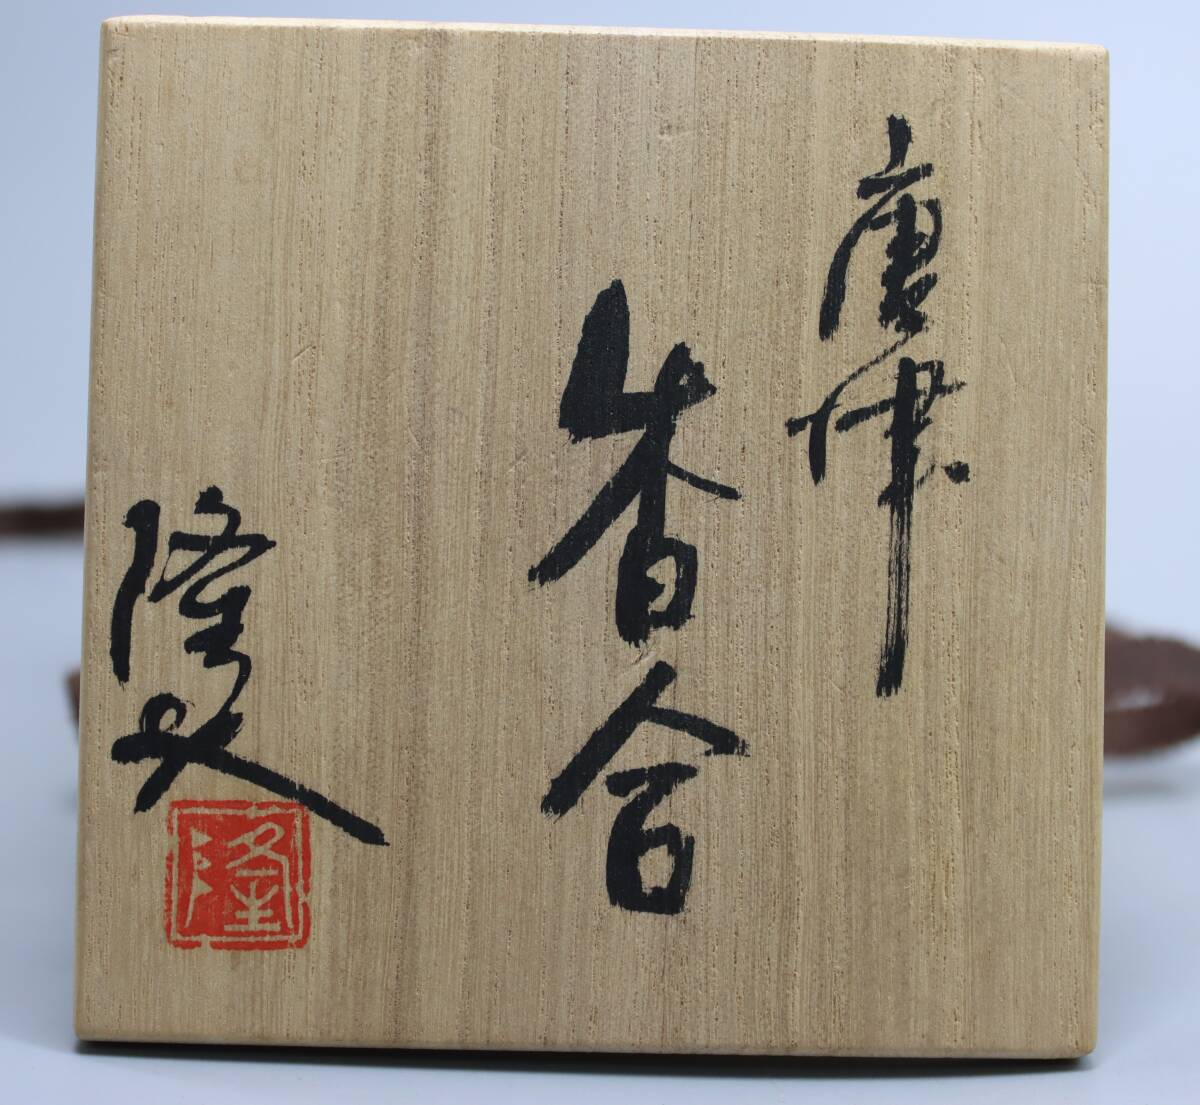 唐津
香合
隆史
隆